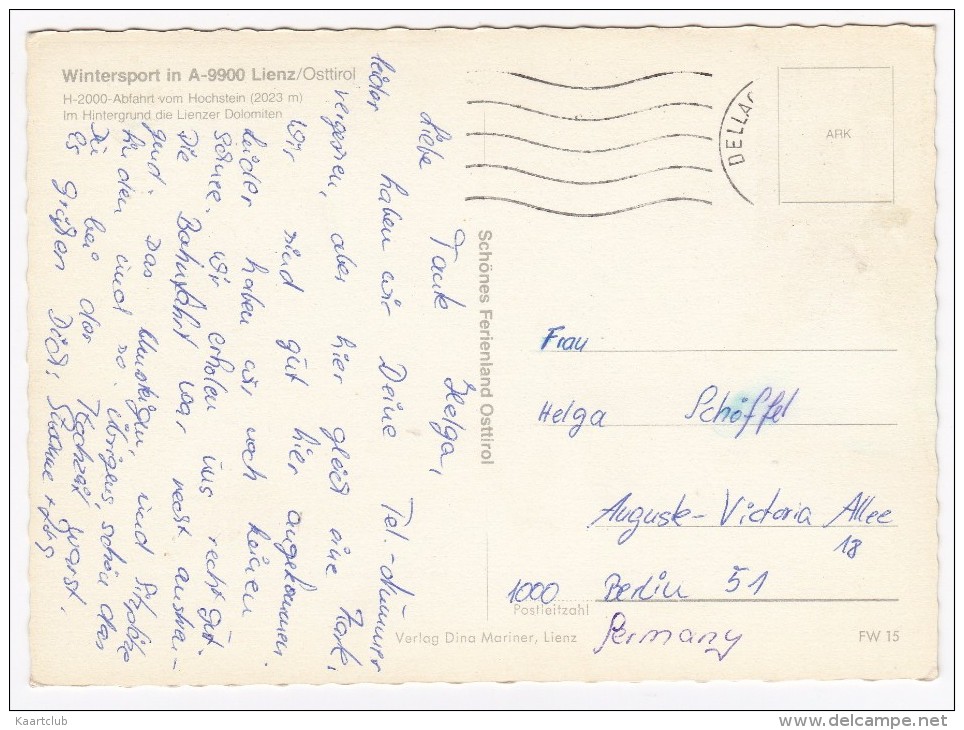 Wintersport in A-9900 Lienz/Osttirol
H-2000-Abfahrt vom Hochstein (2023 m)
Im Hintergrund die Lienzer Dolomiten
Liebe Tante Helga,
leider haben wir Deine Tel.-Nummer
vergessen, aber hier gleich eine Karte.
Wir sind gut hier angekommen.
Leider haben wir noch keinen
Schnee. Wir erholen uns recht gut.
Die Bahnfahrt war recht anstren-
gend. Das Umsteigen, und Stolze
Hu den und so. Übrigens, schön das
Du bei der Hochzeit warst.
Es Grüßen Dich: Susanne +
Schönes Ferienland Osttirol
DELLAC
ARK
Frau
Helga Schöffel
Auguste-Victoria Allee
18
1000 Berlin 51
Postleitzahl
Germany
Verlag Dina Mariner, Lienz
FW 15
Kaartclub
www.delcampe.net